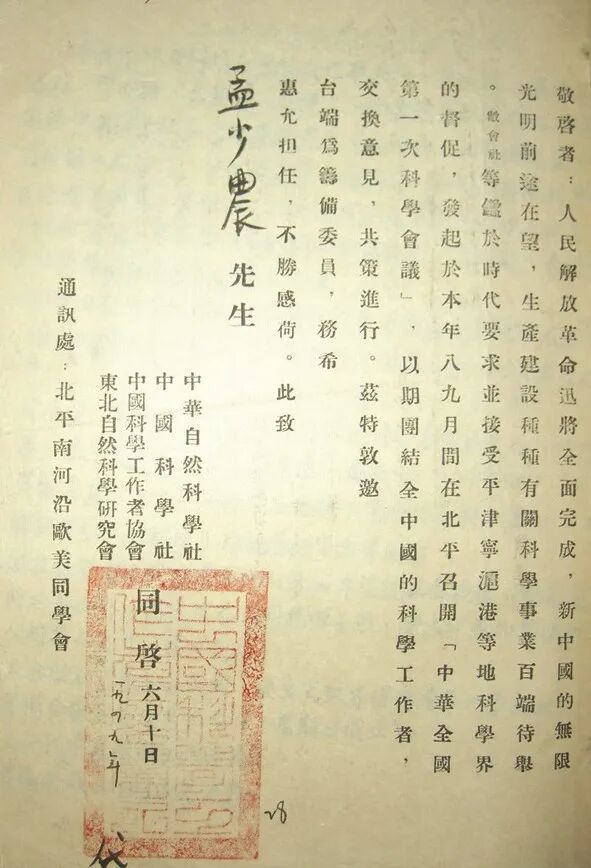 敬啓者：人民解放革命迅將全面完成，新中國的無限
光明前途在望，生產建設種種有關科學事業百端待舉
。敝會社等鑑於時代要求並接受平津寧滬港等地科學界
的督促，發起於本年八九月間在北平召開「中華全國
第一次科學會議」，以期團結全中國的科學工作者，
交換意見，共策進行。茲特敦邀
台端爲籌備委員，務希
惠允担任，不勝感荷。此致
孟少農先生
中華自然科學社
中國科學社
中國科學工作者協會
東北自然科學研究會
同啓 六月十日
一九四九年
通訊處：北平南河沿歐美同學會
28